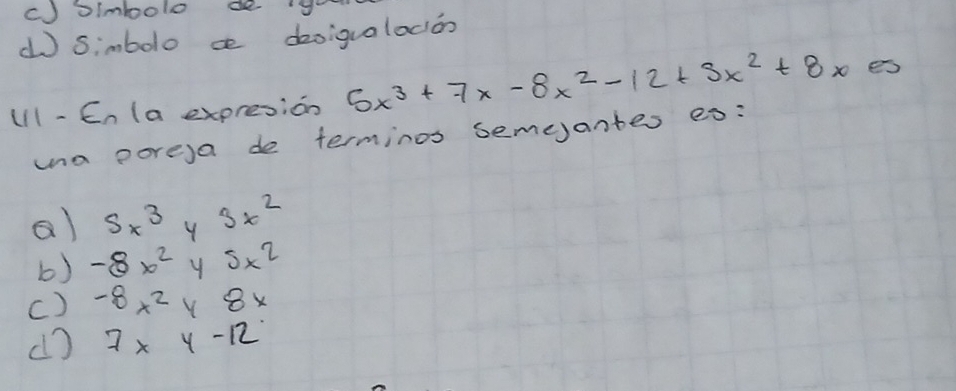 c) Simbolo de
d) Simbolo de desigualación
UI - En la expresión 5x³ + 7x - 8x² - 12 + 3x² + 8x es
una pareja de terminos semejantes es:
a) 5x³ y 3x²
b) -8x² y 3x²
c) -8x² y 8x
d) 7x y -12